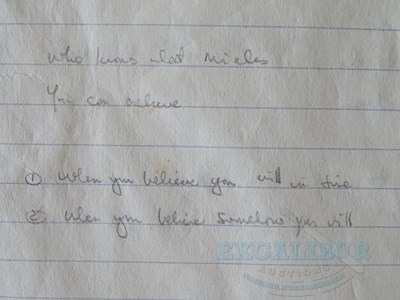 Who knows what Miicles
You can achieve
① When you believe you will in time
② When you believe somehow you will
EXCALIBUR
AUCTIONS